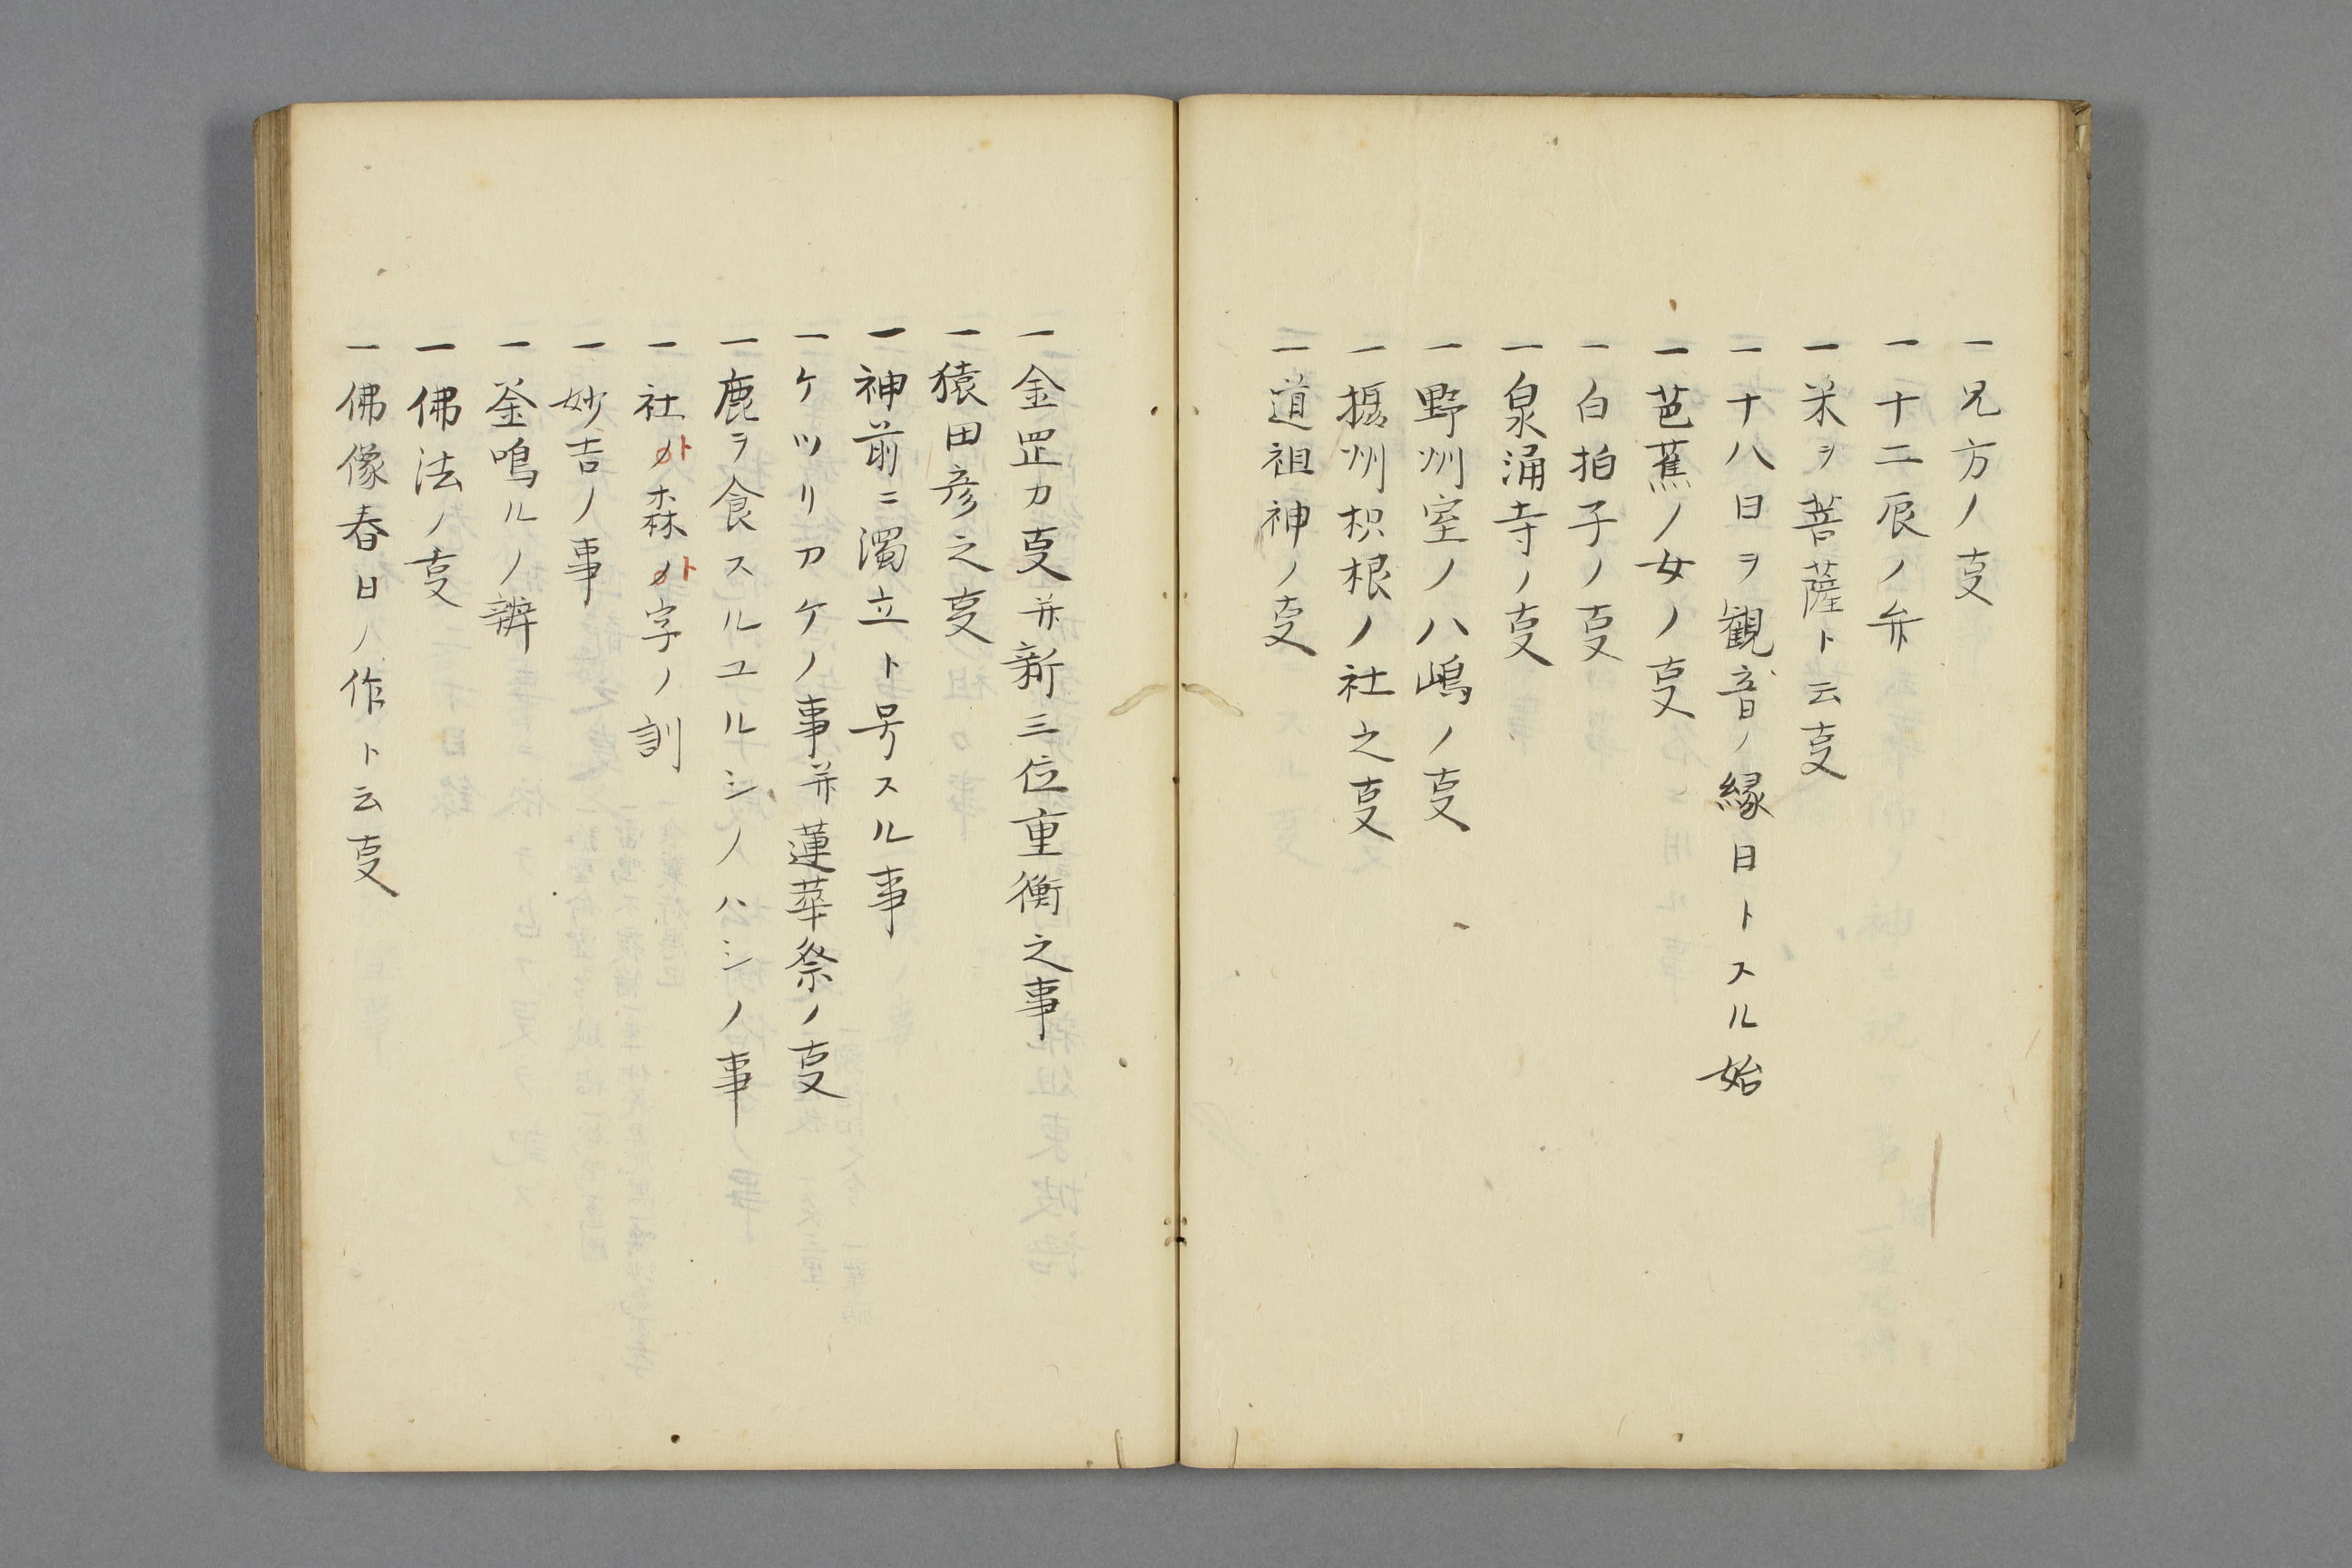 一兄方ノ叓
一十二辰ノ弁
一米ヲ菩薩ト云叓
一十八日ヲ観音ノ縁日トスル始
一芭蕉ノ女ノ叓
一白拍子ノ叓
一泉涌寺ノ叓
一野州室ノ八嶋ノ叓
一摂州枳根ノ社之叓
一道祖神ノ叓
一金罡カ叓并新三位重衡之事
一猿田彦之叓
一神前ニ濁立ト号スル事
一ケツリカケノ事并蓮華祭ノ叓
一鹿ヲ食スルユルシノハシノ事
一社ト森ト字ノ訓
一妙吉ノ事
一釜鳴ルノ辨
一佛法ノ叓
一佛像春日ノ作ト云叓